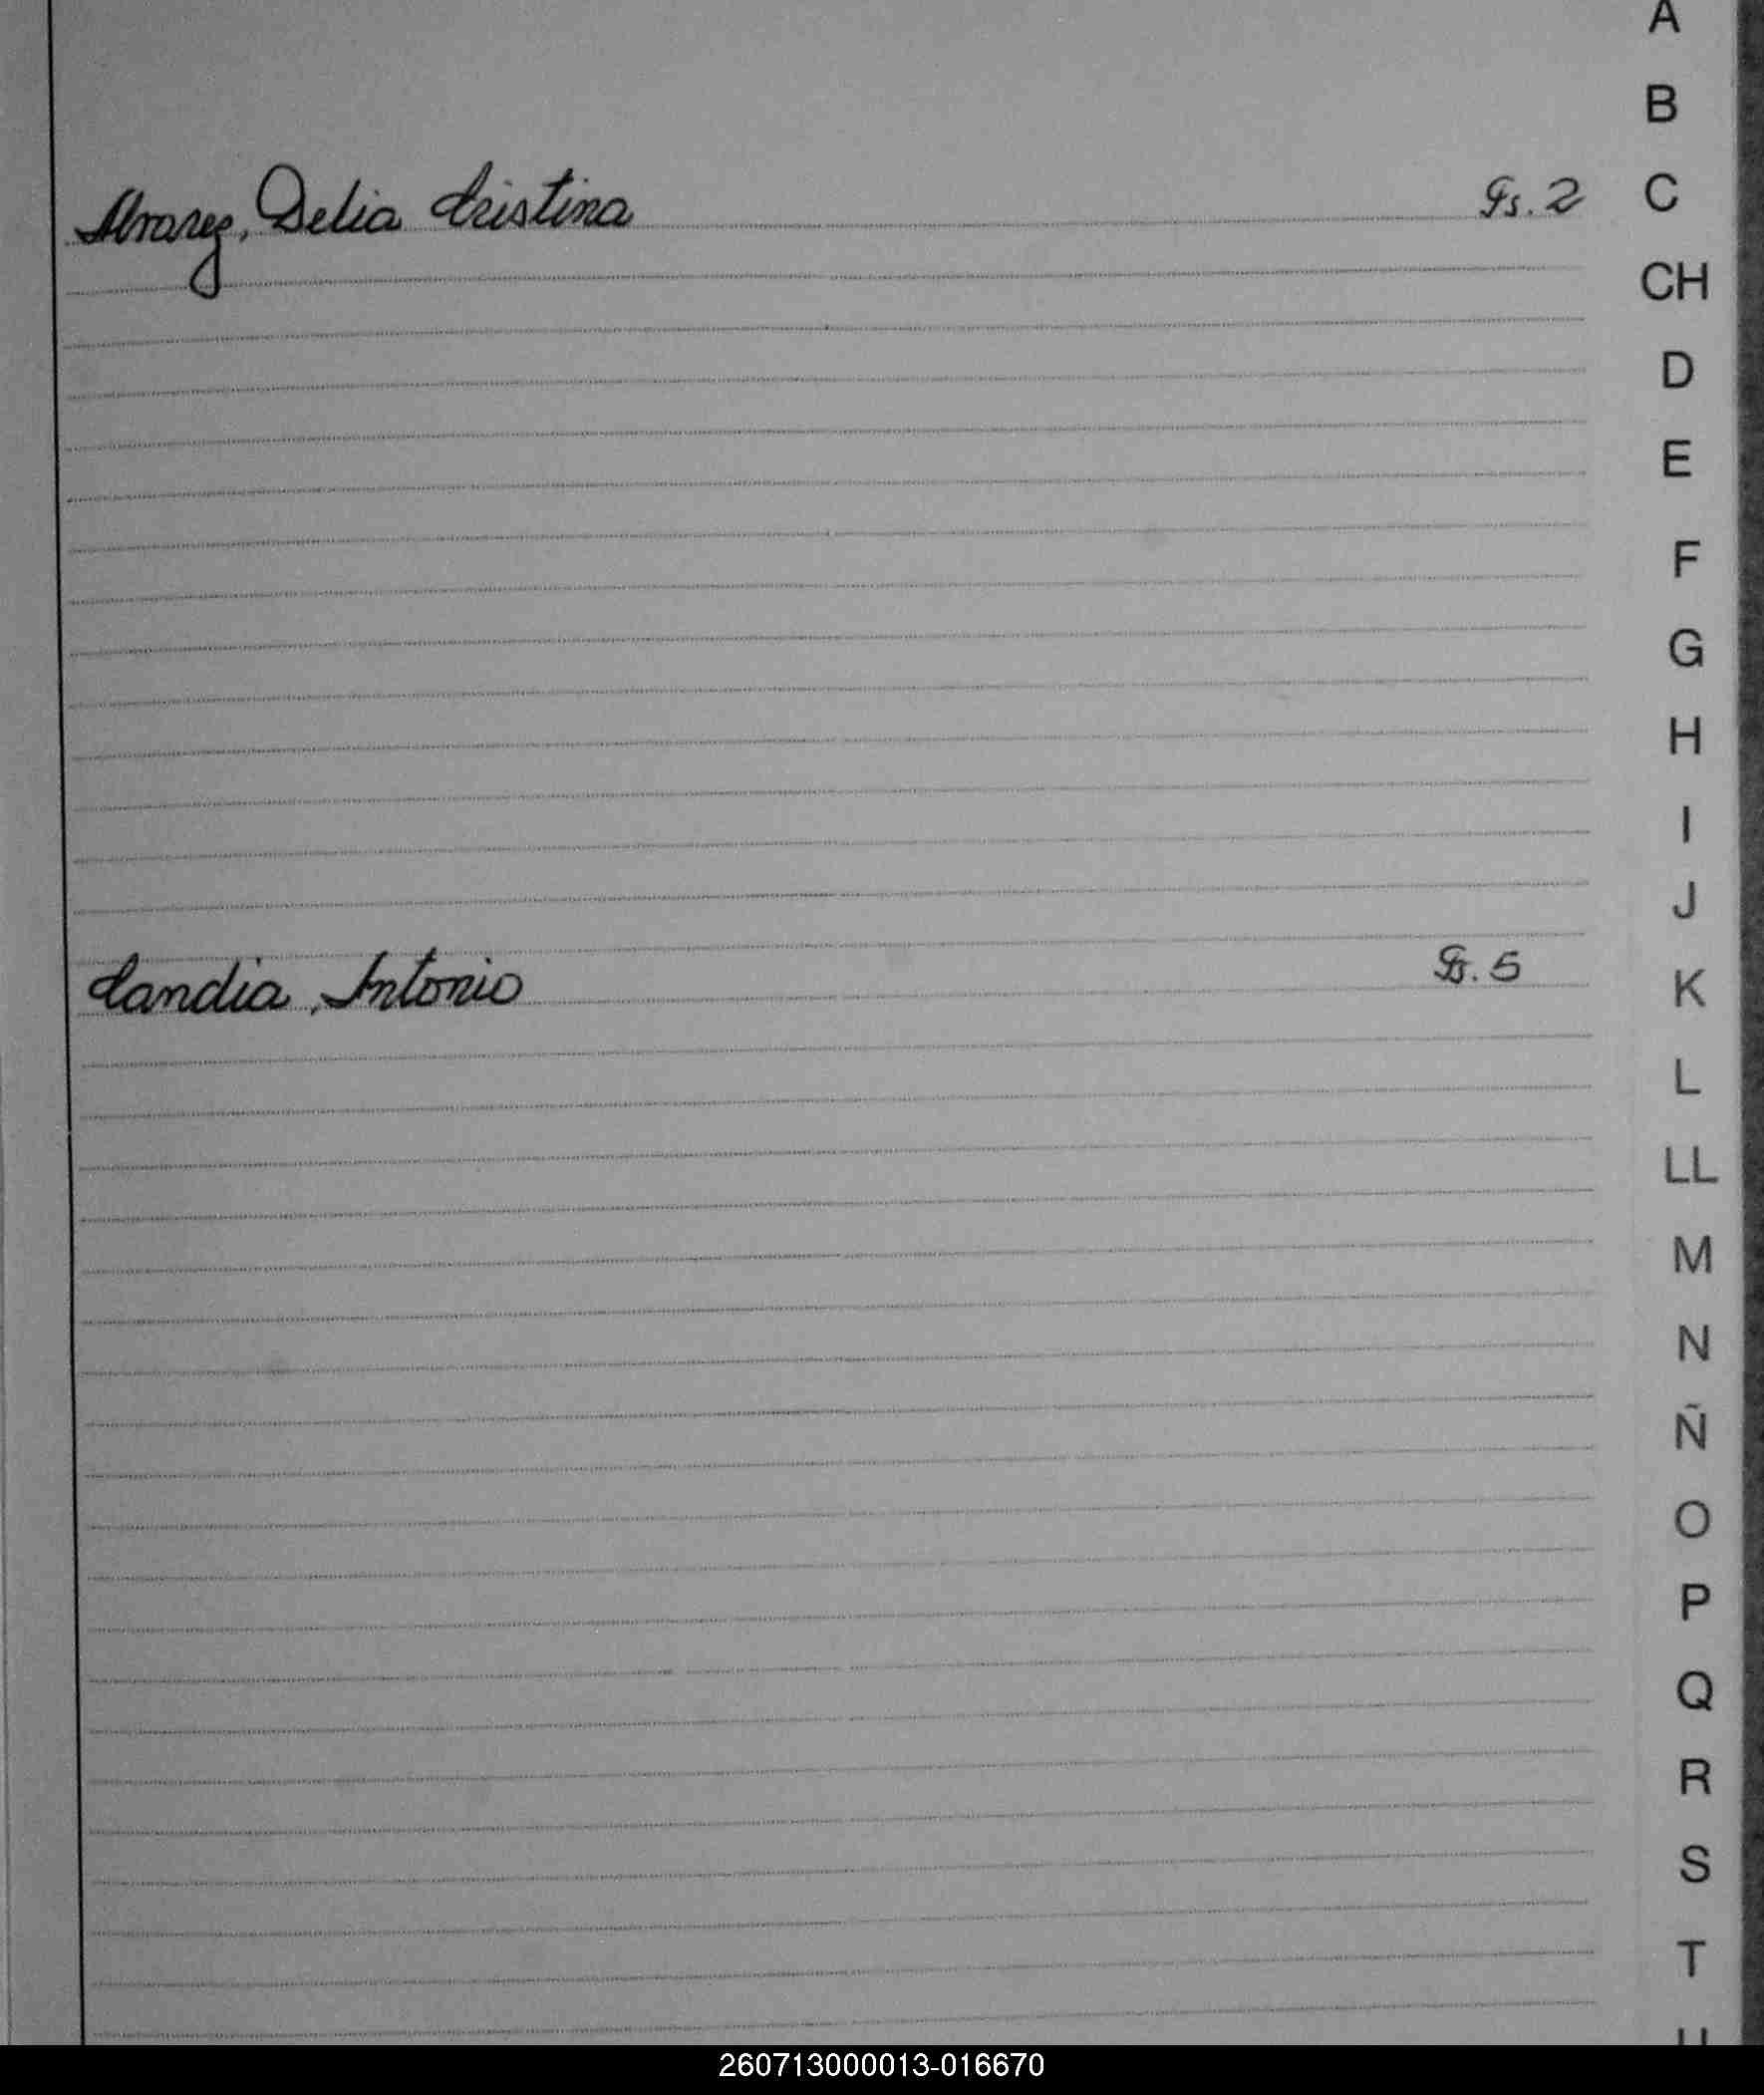 A
B
Alvarez, Delia Cristina Fs. 2 C
CH
D
E
F
G
H
I
J
Candia, Antonio Fs. 5
K
L
LL
M
N
Ñ
O
P
Q
R
S
T
U
260713000013-016670